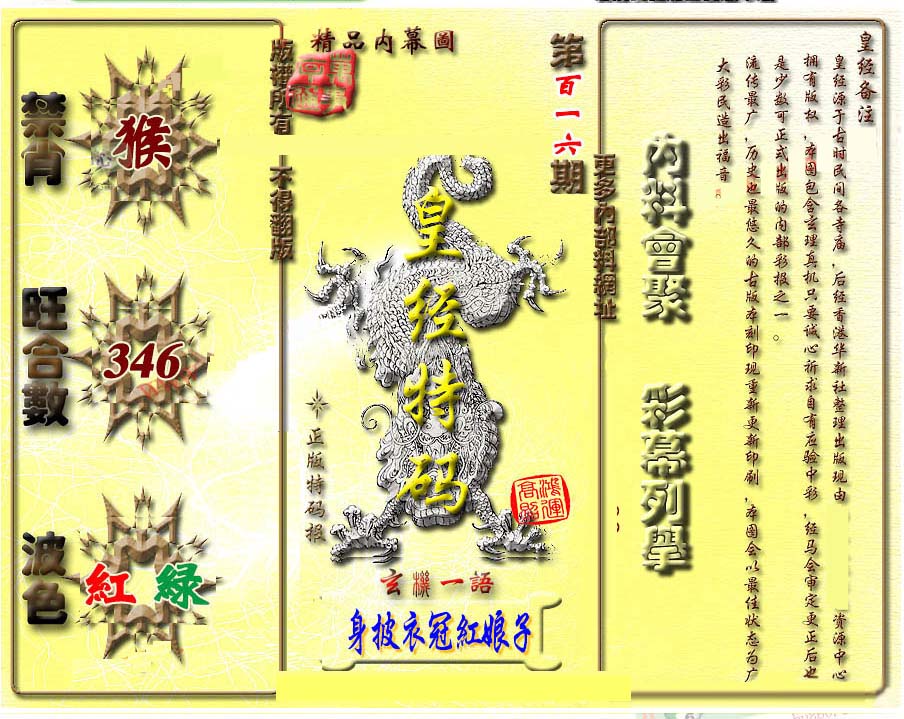 皇经备注
皇经源于古时民间各寺庙，后经香港华新社整理出版现由 资源中心
拥有版权，本图包含玄理真机只要诚心祈求自有应验中彩，经马会审定更正后也
是少数可正式出版的内部彩报之一。
流传最广，历史也最悠久的古版本刻印现重新更新印刷，本图会以最佳状态为广
大彩民造出福音
內料會聚
彩幕列擧
更多內部料網址
第百一六期
精品内幕圖
版權所有
不得翻版
皇经特码
正版特码报
鴻運
高照
玄機一語
身披衣冠紅娘子
禁肖
猴
旺合數
346
波色
紅 綠